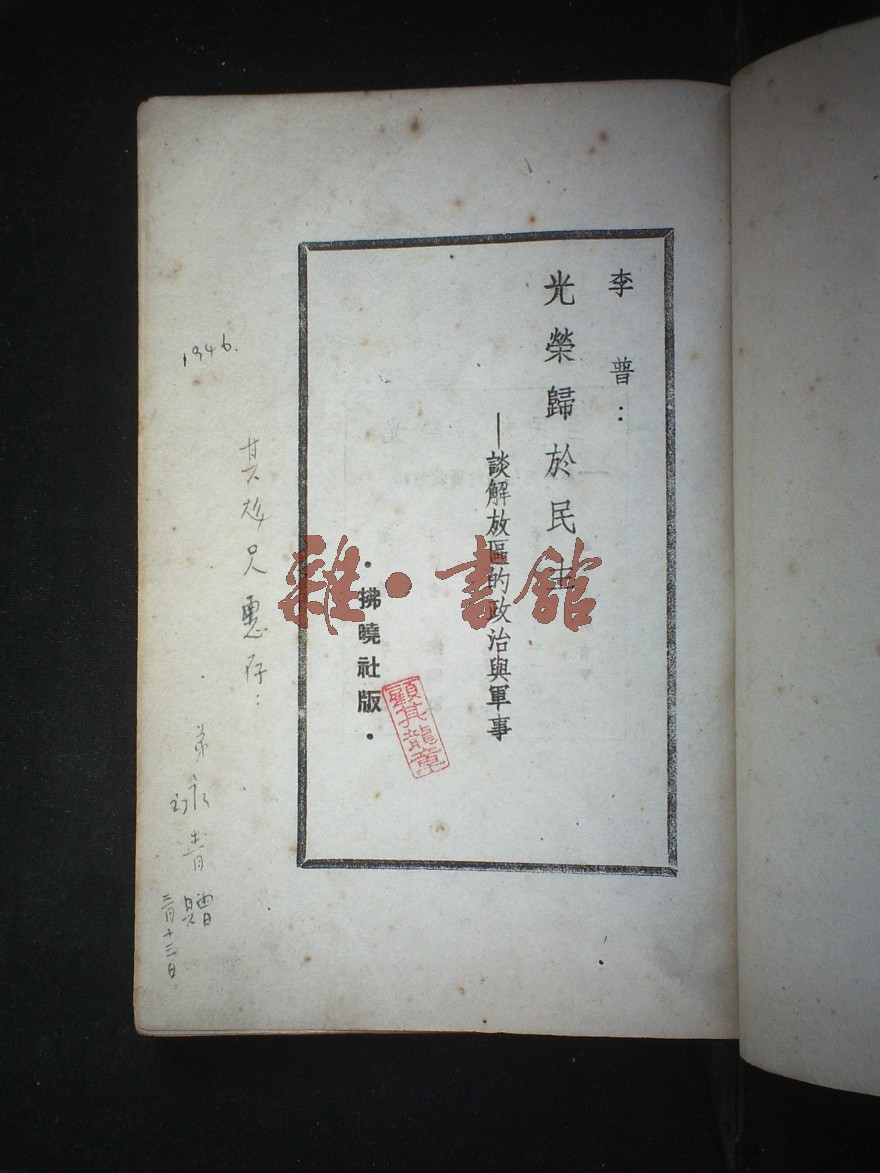 李普：
光榮歸於民主
——談解放區的政治與軍事
·拂曉社版·
顧其龍章
雜·書館
1946.
其彪兄惠存：
弟詠青贈
三月十三日